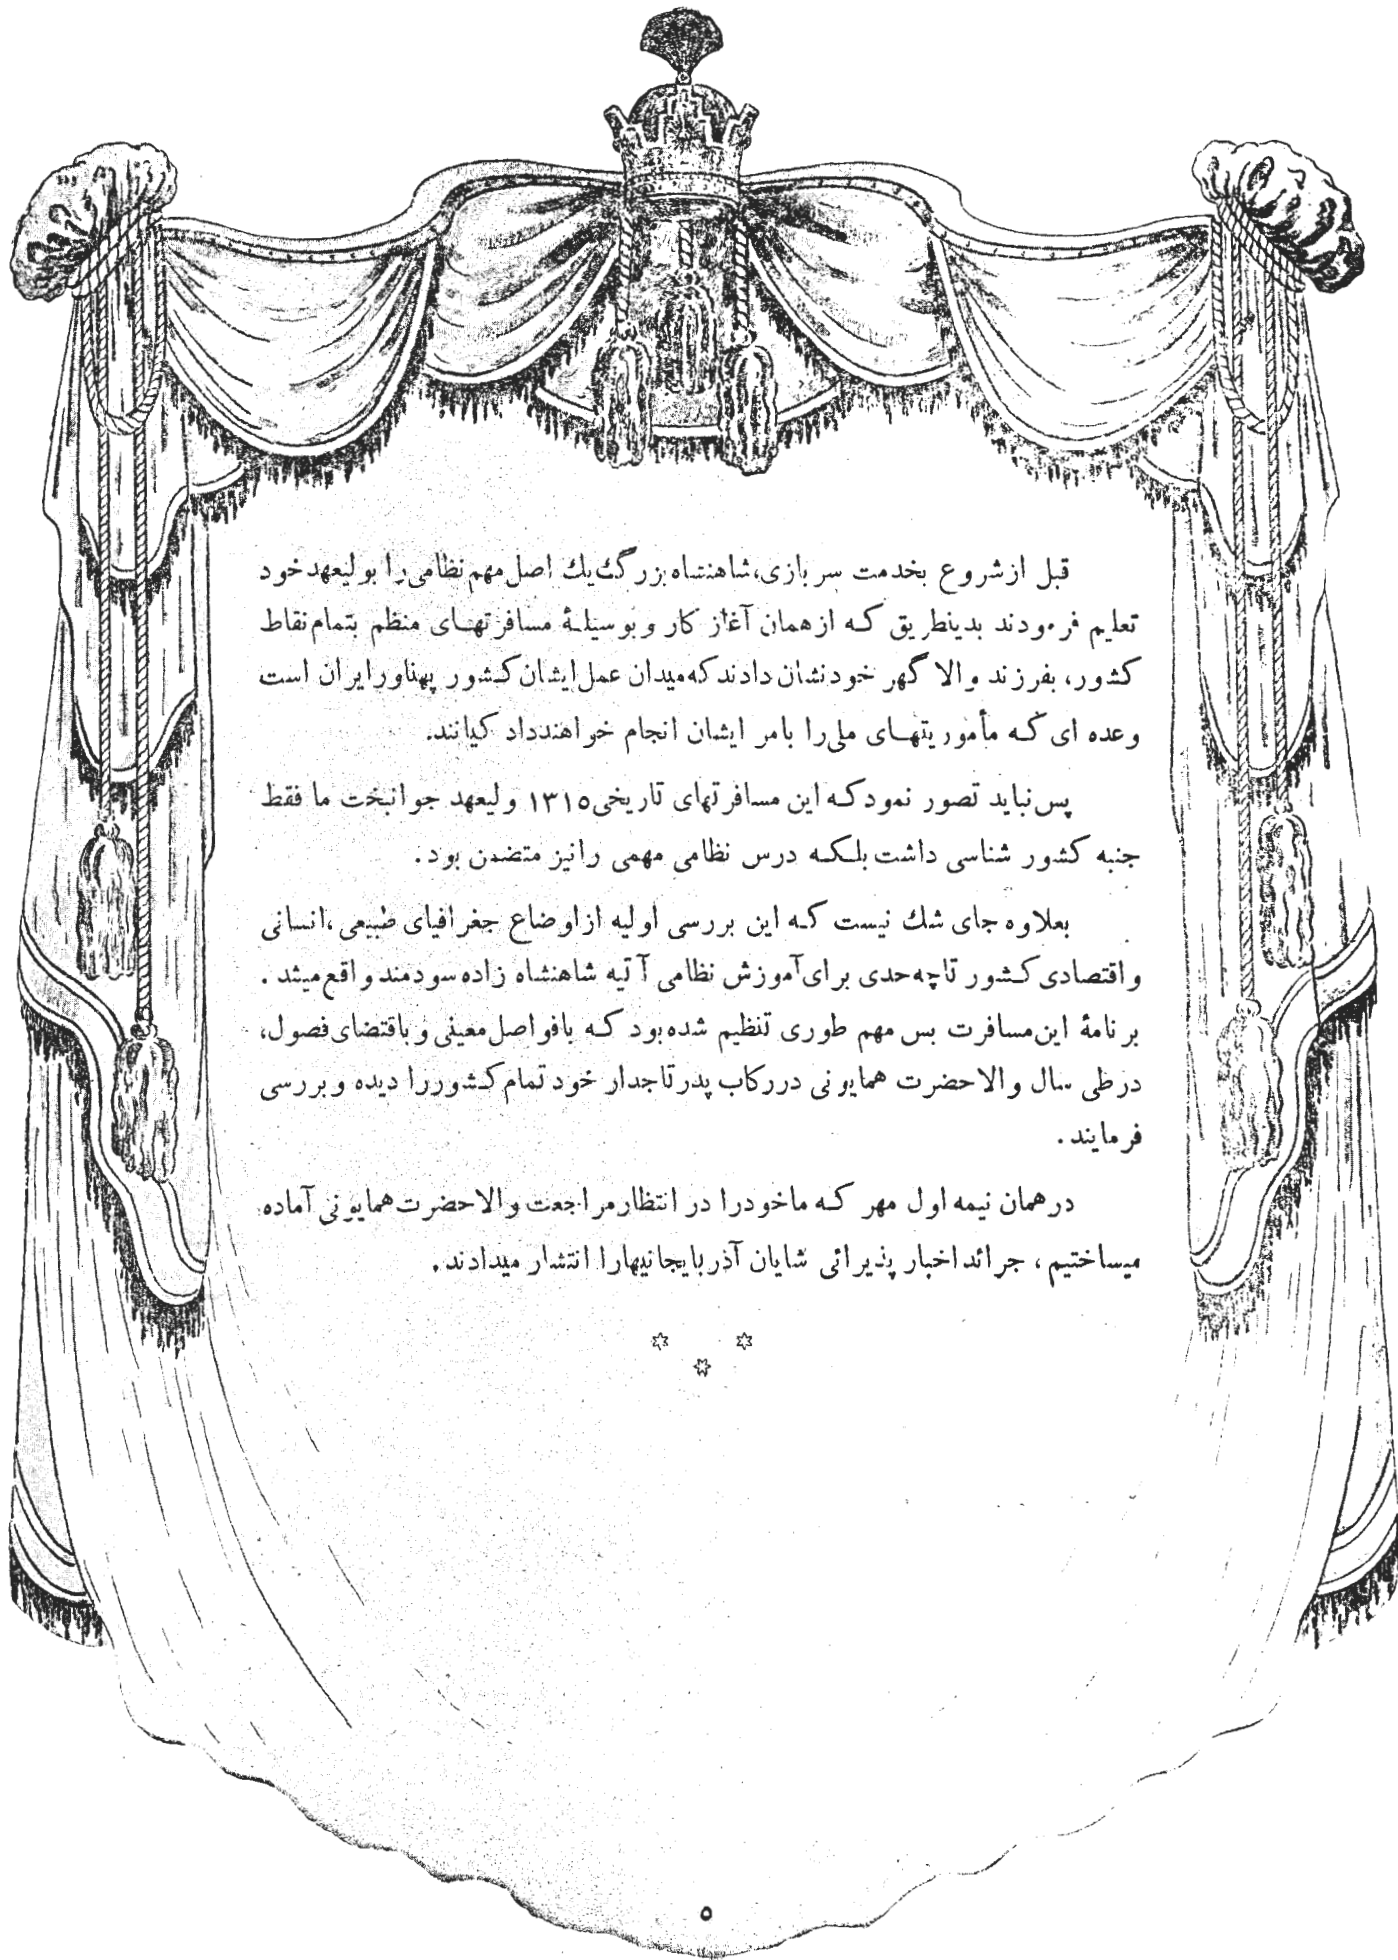 قبل از شروع بخدمت سربازی، شاهنشاه بزرگ یك اصل مهم نظامی را بولیعهد خود
تعلیم فرمودند بدینطریق که از همان آغاز کار و بوسیلهٔ مسافرتهای منظم بتمام نقاط
کشور، بفرزند والا گهر خود نشان دادند که میدان عمل ایشان کشور پهناور ایران است
و عده ای که مأموریتهای ملی را بامر ایشان انجام خواهند داد کیانند.
پس نباید تصور نمود که این مسافرتهای تاریخی ۱۳۱۵ ولیعهد جوانبخت ما فقط
جنبه کشور شناسی داشت بلکه درس نظامی مهمی را نیز متضمن بود.
بعلاوه جای شك نیست که این بررسی اولیه از اوضاع جغرافیای طبیعی، انسانی
و اقتصادی کشور تا چه حدی برای آموزش نظامی آتیه شاهنشاه زاده سودمند واقع میشد.
برنامهٔ این مسافرت بس مهم طوری تنظیم شده بود که بافواصل معینی و باقتضای فصول،
در طی سال والاحضرت همایونی در رکاب پدر تاجدار خود تمام کشور را دیده و بررسی
فرمایند.
در همان نیمه اول مهر که ما خود را در انتظار مراجعت والاحضرت همایونی آماده
میساختیم، جرائد اخبار پذیرائی شایان آذربایجانیها را انتشار میدادند.
۵